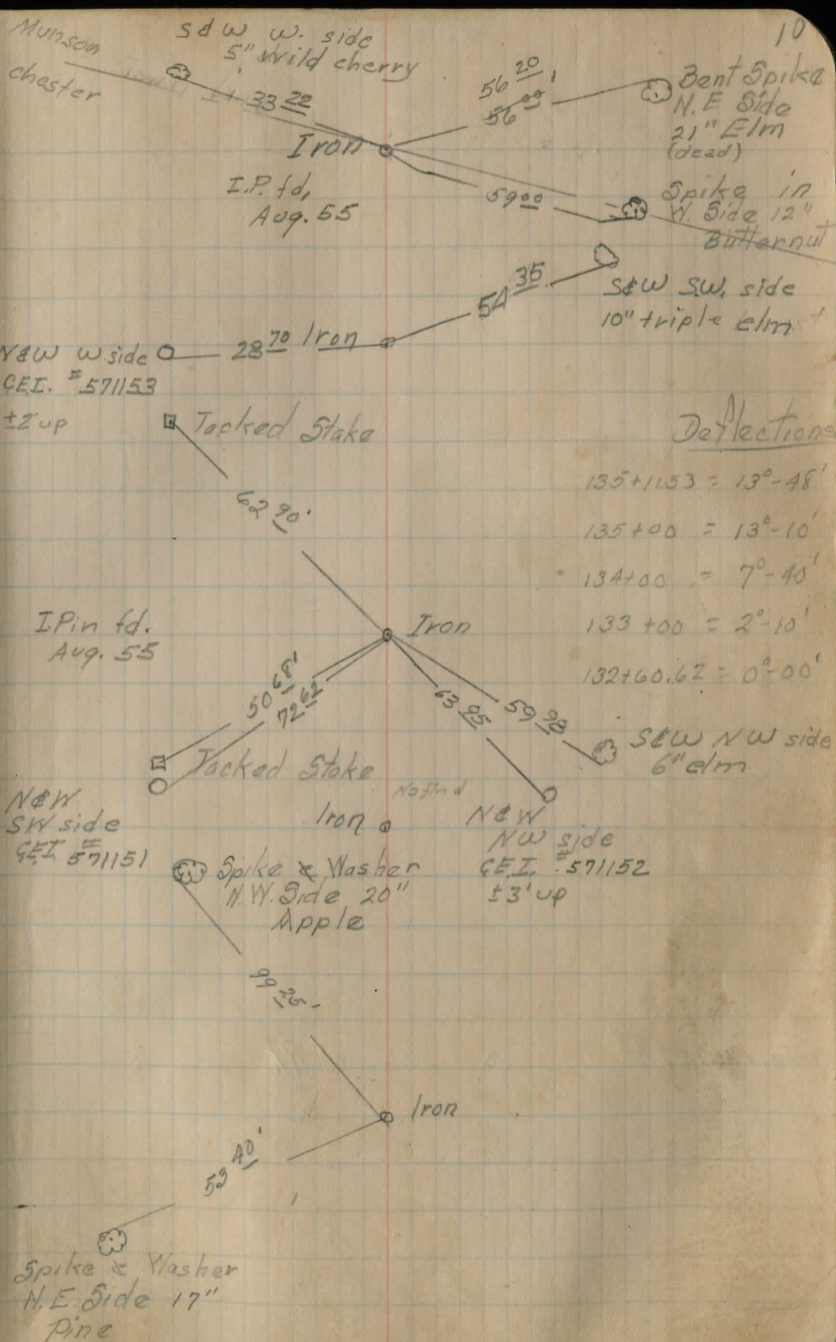 10
Munson
chester
S&W W. side
5" Wild cherry
33 22
56 20'
56 00
Bent Spike
N.E Side
21" Elm
(dead)
Iron
I.P. fd,
Aug. 55
59 00
Spike in
W. Side 12"
Butternut
54 35
S&W S.W. side
10" triple elm
N&W W side
G.E.I. #571153
±2' up
28 70
Iron
Tacked Stake
62 90'
Deflections
135+11.53 = 13°-48'
135+00 = 13°-10'
134+00 = 7°-40'
133+00 = 2°-10'
132+60.62 = 0°-00'
I.Pin fd.
Aug. 55
Iron
50 68'
72 62
63 95
59 98
S&W NW side
6" elm
Tacked Stake
N&W
SW side
G.E.I. #571151
No find
Iron
N&W
NW side
G.E.I. #571152
±3' up
Spike & Washer
N.W. Side 20"
Apple
99 25
Iron
53 40'
Spike & Washer
N.E. Side 17"
Pine